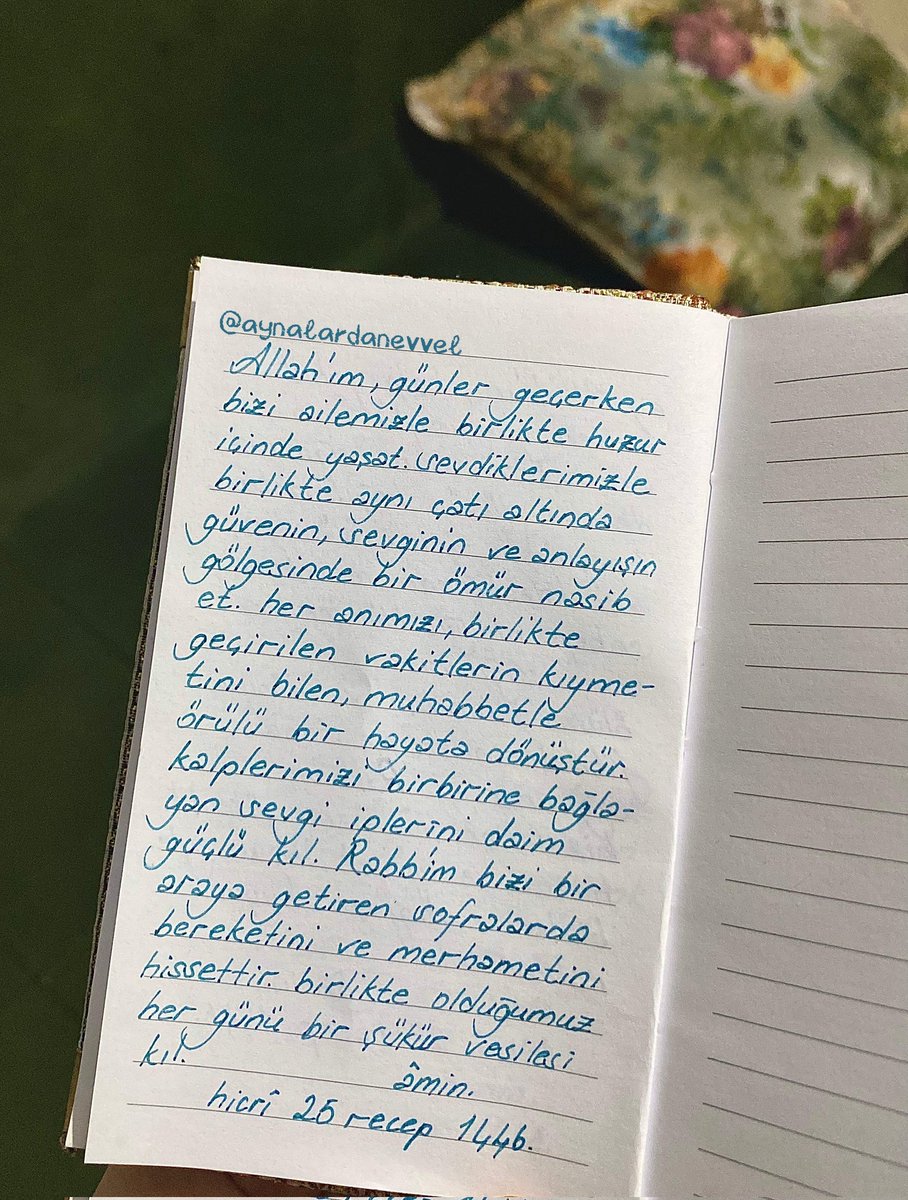 @aynalardanevvel
Allah'ım, günler geçerken
bizi ailemizle birlikte huzur
içinde yaşat. sevdiklerimizle
birlikte aynı çatı altında
güvenin, sevginin ve anlayışın
gölgesinde bir ömür nasib
et. her anımızı, birlikte
geçirilen vakitlerin kıyme-
tini bilen, muhabbetle
örülü bir hayata dönüştür.
kalplerimizi birbirine bağla-
yan sevgi iplerini daim
güçlü kıl. Rabbim bizi bir
araya getiren sofralarda
bereketini ve merhametini
hissettir. birlikte olduğumuz
her günü bir şükür vesilesi
kıl. âmin.
hicrî 25 recep 1446.